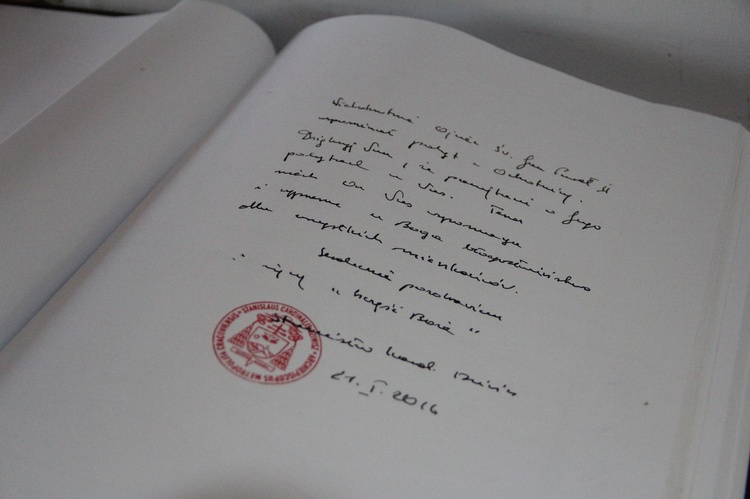 Wielokrotnie Ojciec Św. Jan Paweł II
wspominał pobyt w Ochotnicy.
Dziękuję Wam, że pamiętacie o Jego
pobytach u Was. Teraz
niech On Was wspomaga
i uprasza u Boga błogosławieństwo
dla wszystkich mieszkańców.
Serdecznie pozdrawiam
i życzę "Szczęść Boże"
Stanisław Kard. Dziwisz
21.I.2016
STANISLAUS CARDINALIS DZIWISZ ARCHIEPISCOPUS METROPOLITA CRACOVIENSIS